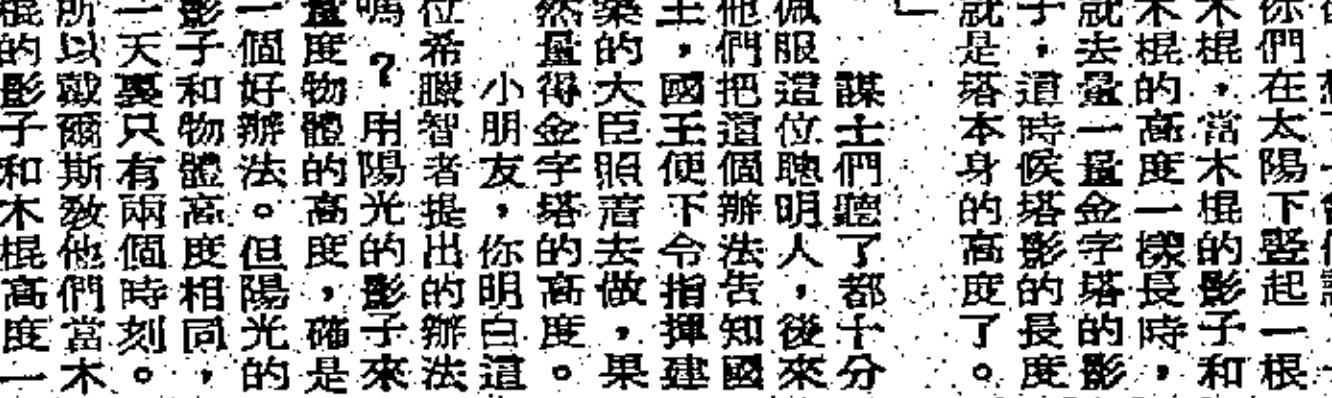 你們在太陽下豎起一根
木棍,當木棍的影子和
木棍的高度一樣長時,
就去量一量金字塔的影
子,這時候塔影的長度
就是塔本身的高度了。
」
謀士們聽了都十分
佩服這位聰明人,後來
他們把這個辦法告知國
王,國王便下令指揮建
築的大臣照着去做,果
然量得金字塔的高度。
小朋友,你明白這
位希臘智者提出的辦法
嗎?用陽光的影子來
量度物體的高度,確是
一個好辦法。但陽光的
影子和物體高度相同,
一天裏只有兩個時刻。
所以戴爾斯教他們當木
棍的影子和木棍高度一